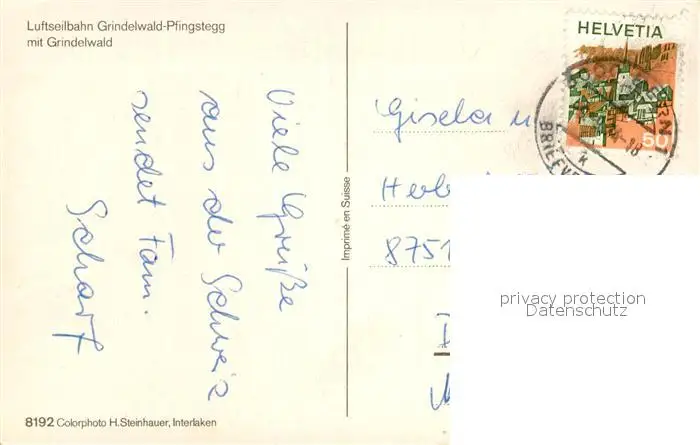 Luftseilbahn Grindelwald-Pfingstegg
mit Grindelwald
Viele Grüße
aus der Schweiz
sendet Fam.
Scharf
8192 Colorphoto H.Steinhauer, Interlaken
Imprimé en Suisse
HELVETIA
50
Gisela u
8751
privacy protection
Datenschutz